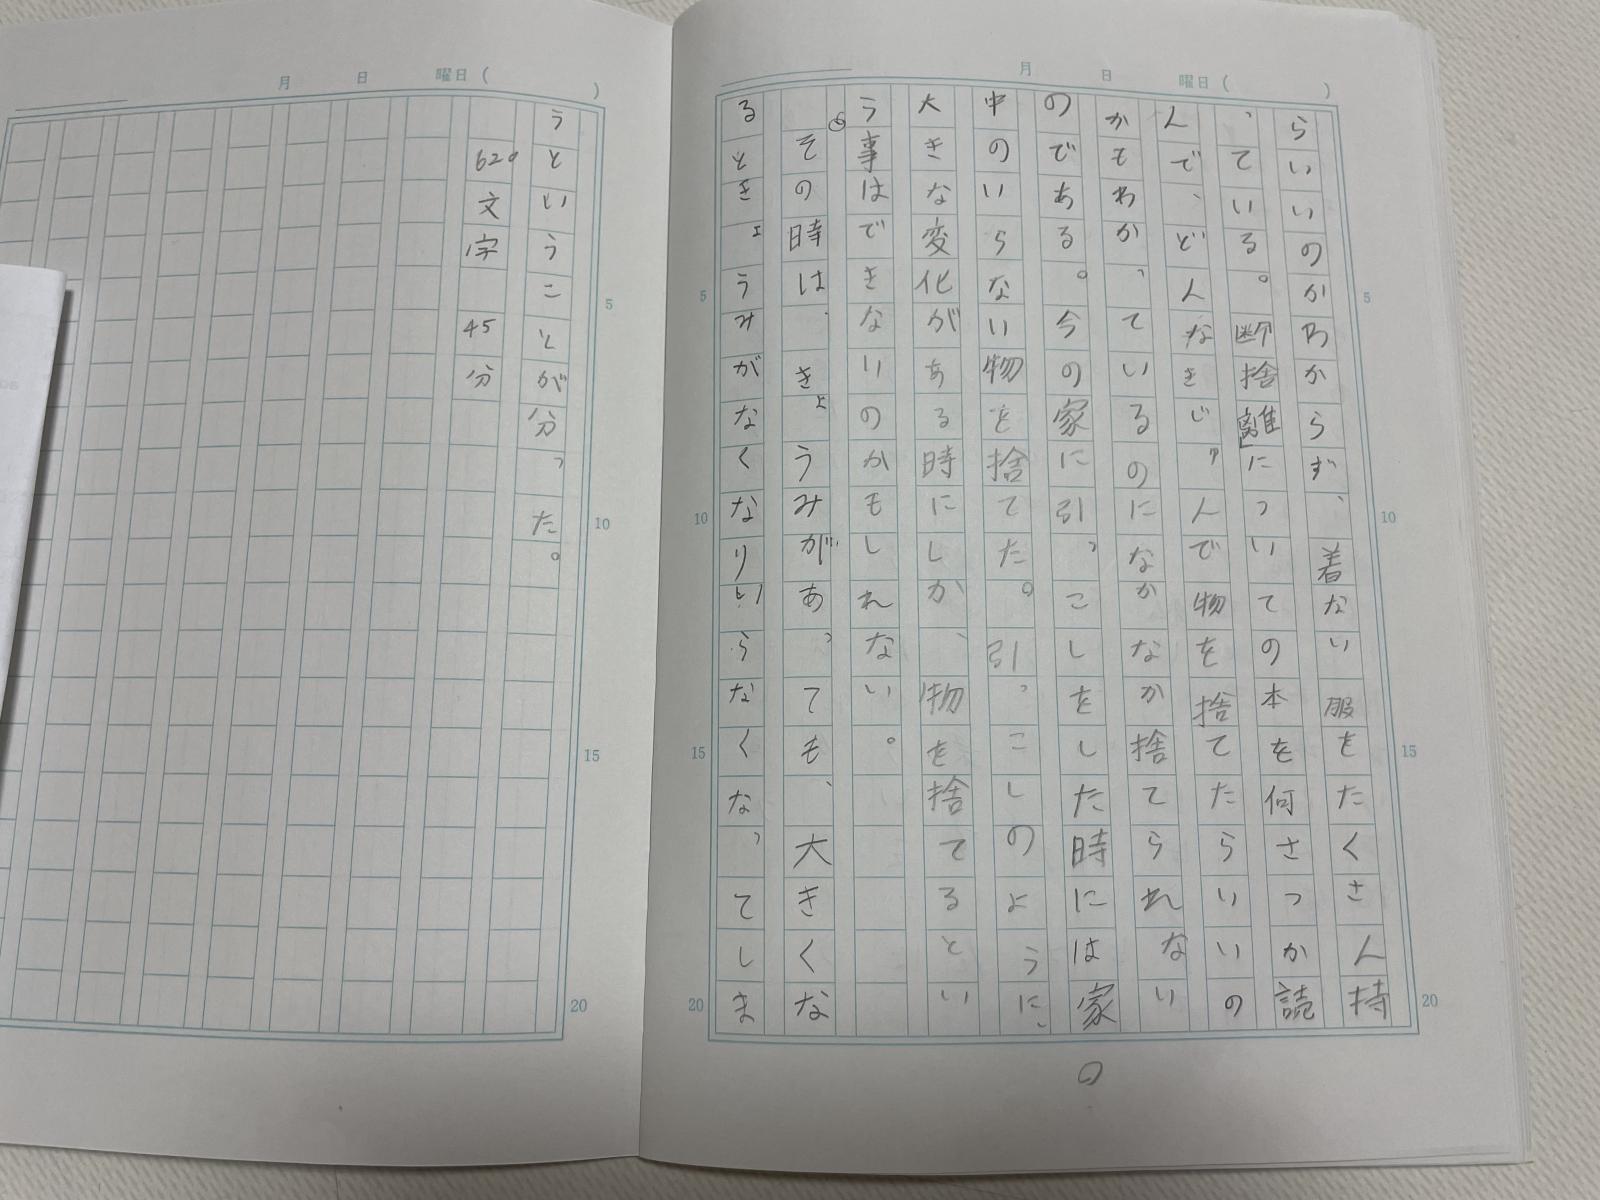 月 日 曜日( )
らいいのかわからず、着ない服をたくさん持
っている。断捨離について の本を何さつか読
んで、どんなきじゅんで物を捨てたらいいの
かもわかっているのになかなか捨てられない
のである。今の家に引っこしをした時には家の
中のいらない物を捨てた。引っこしのように、
大きな変化がある時にしか、物を捨てるとい
う事はできないのかもしれない。
その時は、きょうみがあっても、大きくな
るときょうみがなくなりいらなくなってしま
5
10
15
20
5
10
15
20
月 日 曜日( )
うということが分った。
620文字 45分
5
10
15
20